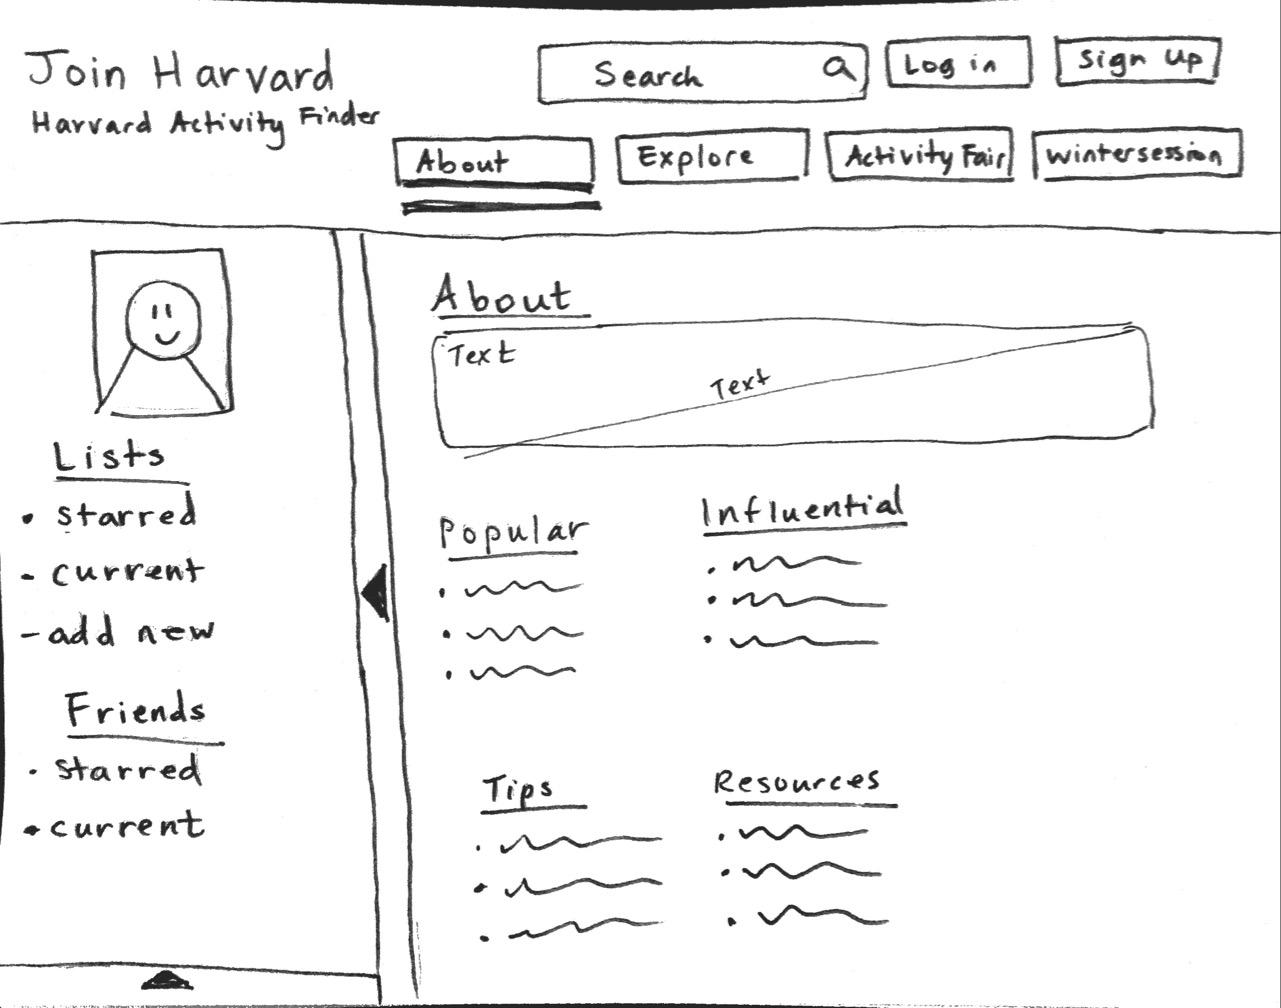 Join Harvard
Harvard Activity Finder
Search
Log in
Sign Up
About
Explore
Activity Fair
Wintersession
Lists
• starred
- current
- add new
Friends
• starred
• current
About
Text
Text
Popular
Influential
Tips
Resources